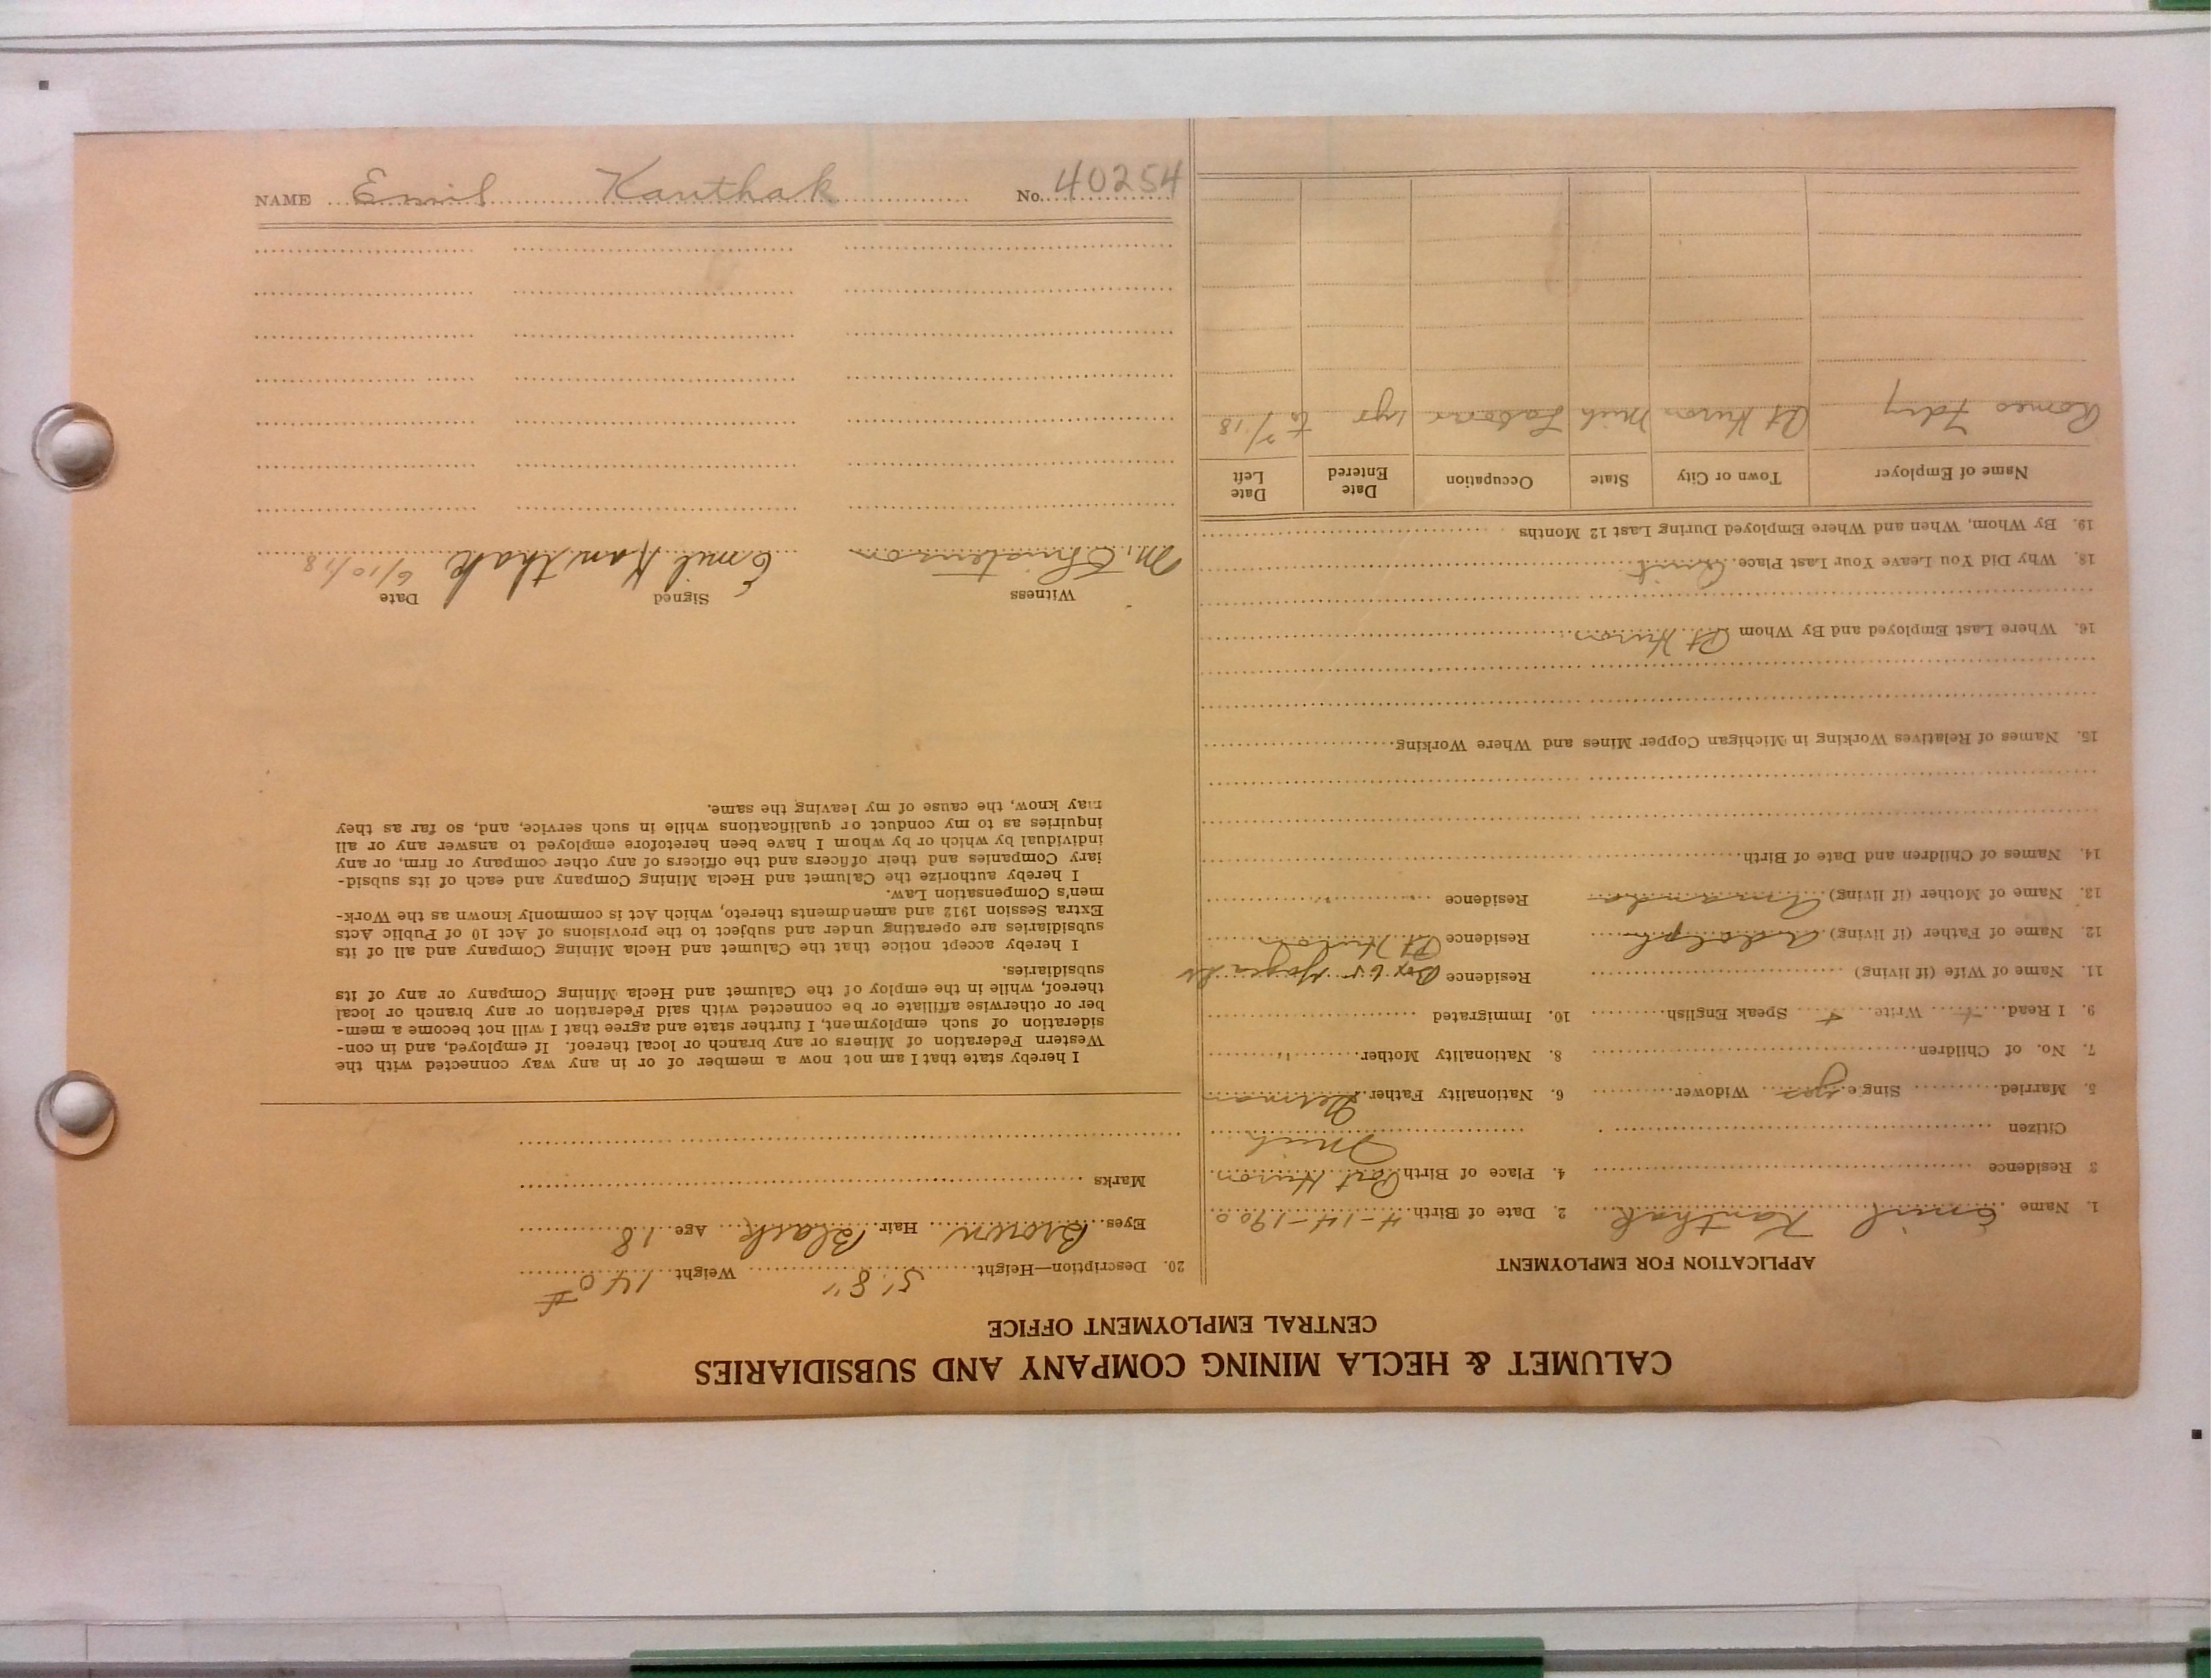 CALUMET & HECLA MINING COMPANY AND SUBSIDIARIES
CENTRAL EMPLOYMENT OFFICE
APPLICATION FOR EMPLOYMENT
1. Name Emil Kanthak 2. Date of Birth 4-14-1900
3 Residence 4. Place of Birth Port Huron
Citizen Mich
5. Married Single yes Widower 6. Nationality Father German
7. No. of Children 8. Nationality Mother "
9. I Read + Write + Speak English 10. Immigrated
11. Name of Wife (if living) Residence Box 65
12. Name of Father (if living) Adolph Residence Pt Huron
13. Name of Mother (if living) Amanda Residence " "
14. Names of Children and Date of Birth
15. Names of Relatives Working in Michigan Copper Mines and Where Working
16. Where Last Employed and By Whom Pt Huron
18. Why Did You Leave Your Last Place. Quit
19. By Whom, When and Where Employed During Last 12 Months
Name of Employer Town or City State Occupation Date Entered Date Left
Romeo Fdry Pt Huron Mich Labour 1 yr to /18
20. Description—Height 5' 8" Weight 140 #
Eyes Brown Hair Black Age 18
Marks
I hereby state that I am not now a member of or in any way connected with the
Western Federation of Miners or any branch or local thereof. If employed, and in con-
sideration of such employment, I further state and agree that I will not become a mem-
ber or otherwise affiliate or be connected with said Federation or any branch or local
thereof, while in the employ of the Calumet and Hecla Mining Company or any of its
subsidiaries.
I hereby accept notice that the Calumet and Hecla Mining Company and all of its
subsidiaries are operating under and subject to the provisions of Act 10 of Public Acts
Extra Session 1912 and amendments thereto, which Act is commonly known as the Work-
men's Compensation Law.
I hereby authorize the Calumet and Hecla Mining Company and each of its subsid-
iary Companies and their officers and the officers of any other company or firm, or any
individual by which or by whom I have been heretofore employed to answer any or all
inquiries as to my conduct or qualifications while in such service, and, so far as they
may know, the cause of my leaving the same.
Witness Signed Date
M. Christenson Emil Kanthak 6/10/18
NAME Emil Kanthak No. 40254